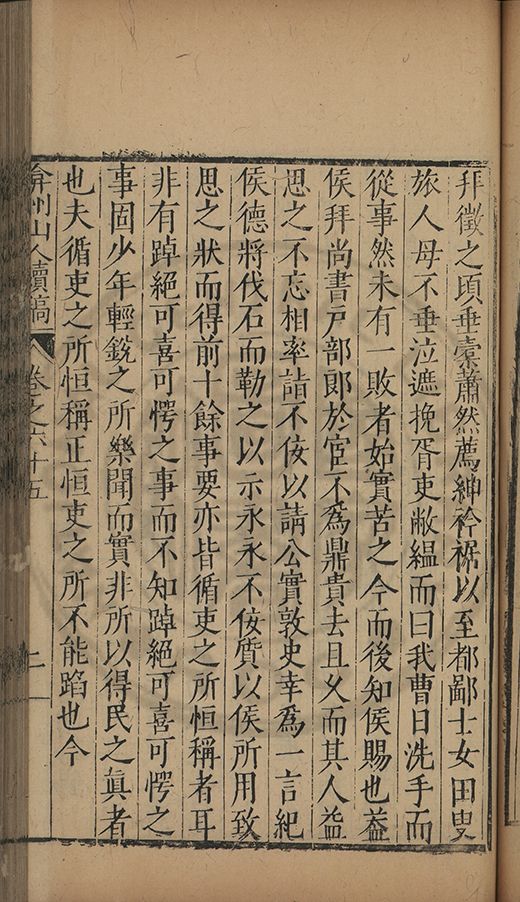 拜徵之頃垂橐蕭然薦紳衿裾以至都鄙士女田叟
旅人毋不垂泣遮挽胥吏敝緼而曰我曹日洗手而
從事然未有一敗者始實苦之今而後知侯賜也葢
侯拜尚書戸部郎於宦不爲鼎貴去且乂而其人益
思之不忘相率詣不佞以請公實敦史幸爲一言紀
侯德將伐石而勒之以示永永不佞質以侯所用致
思之狀而得前十餘事要亦皆循吏之所恒稱者耳
非有踔絕可喜可愕之事而不知踔絕可喜可愕之
事固少年輕銳之所樂聞而實非所以得民之眞者
也夫循吏之所恒稱正恒吏之所不能蹈也今
弇州山人續稿 卷之六十五 十一